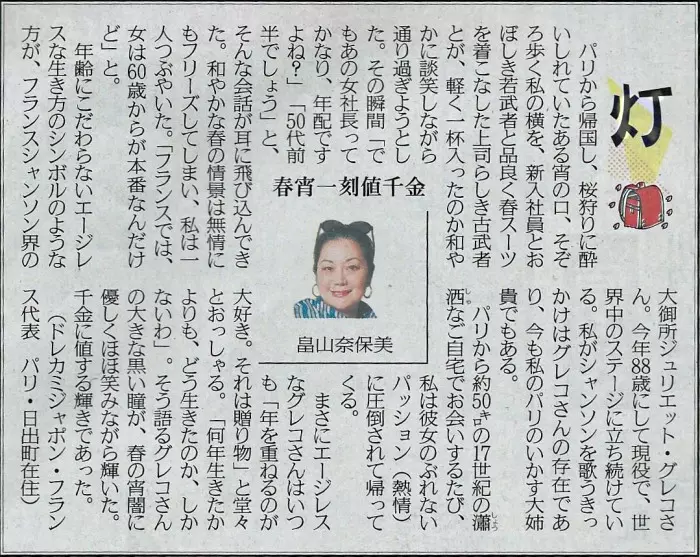 灯
春宵一刻値千金
パリから帰国し、桜狩りに酔
いしれていたある宵の口、そぞ
ろ歩く私の横を、新入社員とお
ぼしき若武者と品良く春スーツ
を着こなした上司らしき古武者
とが、軽く一杯入ったのか和や
かに談笑しながら
通り過ぎようとし
た。その瞬間「で
もあの女社長って
かなり、年配です
よね?」「50代前
半でしょう」と、
そんな会話が耳に飛び込んでき
た。和やかな春の情景は無情に
もフリーズしてしまい、私は一
人つぶやいた。「フランスでは、
女は60歳からが本番なんだけ
ど」と。
年齢にこだわらないエージレ
スな生き方のシンボルのような
方が、フランスシャンソン界の
大御所ジュリエット・グレコさ
ん。今年88歳にして現役で、世
界中のステージに立ち続けてい
る。私がシャンソンを歌うきっ
かけはグレコさんの存在であ
り、今も私のパリのいかす大姉
貴でもある。
パリから約50㌔の17世紀の瀟
しょう
洒なご自宅でお会いするたび、
しゃ
私は彼女のぶれない
パッション(熱情)
に圧倒されて帰って
くる。
まさにエージレス
なグレコさんはいつ
も「年を重ねるのが
大好き。それは贈り物」と堂々
とおっしゃる。「何年生きたか
よりも、どう生きたのか、しか
ないわ」。そう語るグレコさん
の大きな黒い瞳が、春の宵闇に
優しくほほ笑みながら輝いた。
千金に値する輝きであった。
(ドレカミジャポン・フラン
ス代表 パリ・日出町在住)
畠山奈保美